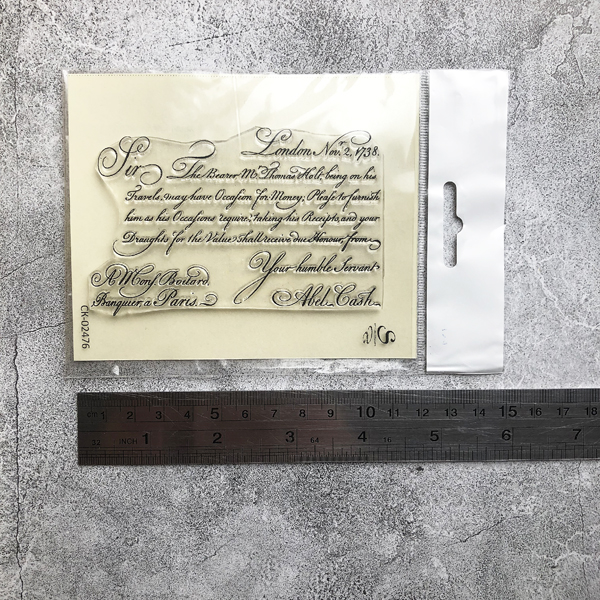 London, Nov.r 2, 1738.
Sir
The Bearer Mr. Thomas Holt, being on his
Travels, may have Occasion for Money; Please to furnish
him as his Occasions require, taking his Receipts, and your
Draughts for the Value shall receive due Honour, from
Your humble Servant
A Monsr. Boitard,
Banquier, a Paris.
Abel Cash.
CK-02476
cm 1 2 3 4 5 6 7 8 9 10 11 12 13 14 15 16 17 18
32 INCH 1 2 3 64 4 5 6 7